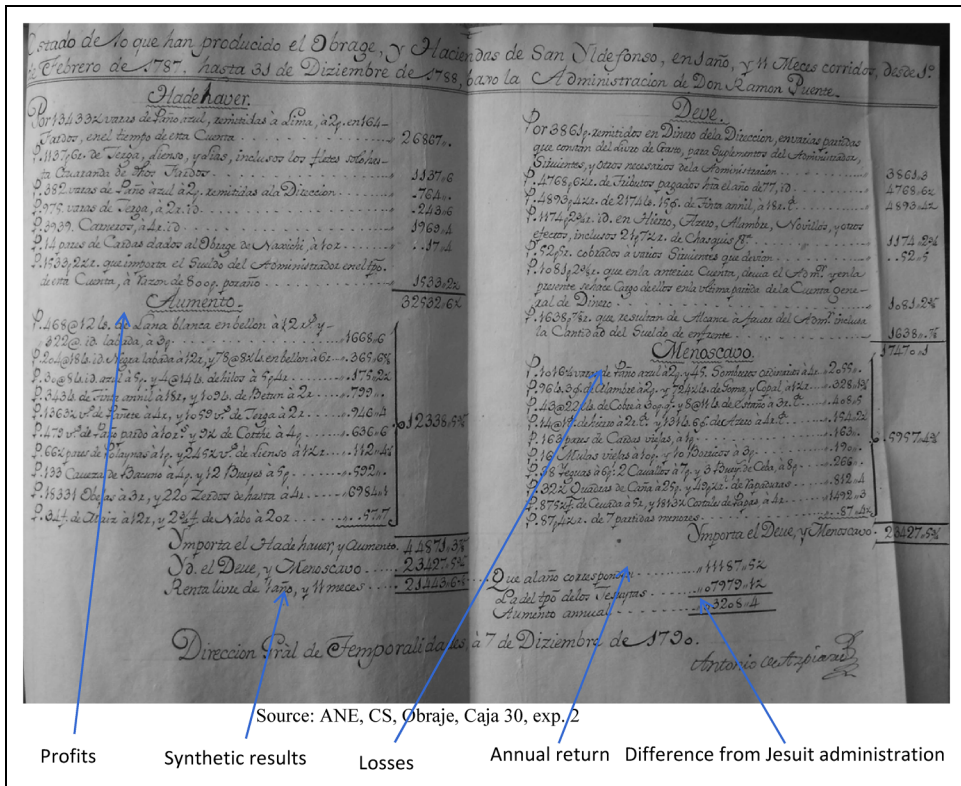 Estado de lo que han producido el Obrage, y Haciendas de San Yldefonso, en 1 año, y 11 Meces corridos, desde 1º
de Febrero de 1787, hasta 31 de Diziembre de 1788, baxo la Administracion de Don Ramon Puente.
Hadehaver.
Por 13433½ varas de Paño azul, remitidas à Lima, à 2p. en 164
Fardos, en el tiempo de esta Cuenta 26867,,
P. 1137p6r. de Terga, Lienso, y
ta Quaranta de dhos Fardos 1137,,6
P. 382 varas de Paño azul à 2p. remitidas ala Direccion 764,,
P. 975 varas de Terga, à 2r. id 243,,6
P. 3939 Carneros, à 4r. id 1969,,4
P. 14 pares de Cardas dados al Obrage de à 10r 17,,4
P. 1533p2½r. que importa el Sueldo del Administrador en el tpo.
de esta Cuenta, à razon de 800p. por año 1533,,2½
32532,,6½
Aumento.
P. 468@12 ls. de Lana blanca en bellon à 12r y
322@ id. labada, à 3p 1668,,6
P. 204@18 ls. id. Negra labada à 12r, y 78@8 ls. en bellon à 6r
P. 30@8 ls. id. azul à 5p. y 4@14 ls. de hilos à 5p4r 175,,2½
P. 343 ls. de Tinta annil à 18r, y 109 ls. de Betun à 2r 799,,
P. 1363½ vs. de Pañete à 4r, y 1059 vs. de Terga à 2r 946,,4
P. 479 vs. de Paño pardo à 10r y 9½ de Corthe à 4p 636,,6
P. 66½ pares de Polaynas à 1p, y 245½ vs. de Lienso à 1½r 112,,4
P. 133 Cavezas de Bacuno à 4p, y 12 Bueyes à 5p 592,,
P. 18331 Obejas à 3r, y 220 Zerdos de hasta à 4r 6984,,1
P. 34 f. de Maiz à 12r, y 2 f. de Nabo à 20r 57,,7
12338,,5
Ymporta el Hadehaver, y Aumento 44871,,3
Yd. el Deve, y Menoscavo 23427,,5
Renta livre de 1 año, y 11 meces 21443,,6
Deve.
Por 3861p. remitidos en Dinero dela Direccion, en varias partidas
que constan del Livro de Caxa, para Suplementos del Administrador,
Sirvientes, y otros necesarios dela Administracion 3861,,3
P. 4768p6½r. de Tributos pagados hta el año de 77, id 4768,,6½
P. 4893p4½r. de 2174 ls. 15 de Tinta annil, à 18r. 4893,,4½
P. 1174p2¾r. id. en Hierro, Azero, Alambre, Novillos, y otros
efectos, inclusos 21p7½r. de Chasquis 1174,,2¾
P. 52p5r. cobrados à varios Sirvientes que devian 52,,5
P. 1081p2¾r. que en la anterior Cuenta, devia el Admor. y en la
presente se hace Cargo de ellos en la ultima partida de la Cuenta gene-
ral de Dinero 1081,,2¾
P. 1638p. que resultan de Alcance à favor del Admor. inclusa
la Cantidad del Sueldo de enfrente 1638,,
17470,,1
Menoscavo.
P. 1016 varas de Paño azul à 2p. y 45 Sombreros ordinarios à 4r 2055,,
P. 96 ls. de Alambre à 2p. y 724½ ls. de Goma, y Copal, à 1½r 328,,
P. 43@22 ls. de Cobre à y 8@11 ls. de Estaño à 3r. 408,,5
P. 14@ de hierro à 2r. y 131 ls. de Azero à 4r. 154,,2½
P. 163 pares de Cardas viejas, à 1p 163,,
P. 16 Mulas viejas à 10p. y 10 Borricos à 3p 190,,
P. 38 Yeguas à 6p. 2 Cavallos à 7p. y 3 Buey. de Cela, à 8p 266,,
P. 32½ Quadras de Caña à 25p. 812,,4
P. 875½ f. de Cevada à 5r, y 1813½ Costals de Papas à 4r 1492,,3
P. 87p4½r. de 7 partidas menores 87,,4½
5957,,4
Ymporta el Deve, y Menoscavo 23427,,5
Que al año corresponden 11187,,5½
La del tpo delos Jesuytas 07979,,1½
Aumento annual 03208,,4
Direccion Gràl de Temporalidades à 7 de Diziembre de 1790.
Antonio de Azpiazu
Source: ANE, CS, Obraje, Caja 30, exp. 2
Profits
Synthetic results
Losses
Annual return
Difference from Jesuit administration